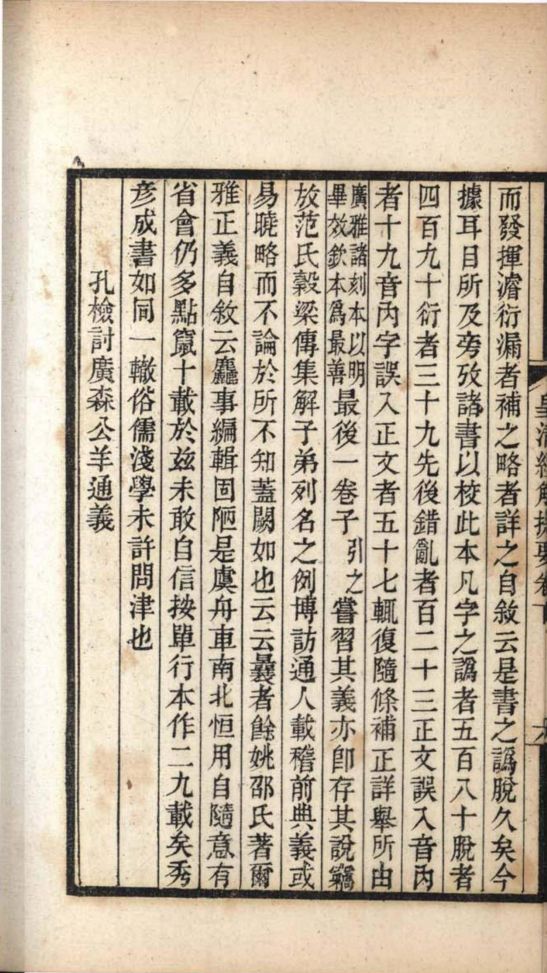 而發揮濬衍漏者補之略者詳之自敘云是書之譌脫久矣今
據耳目所及旁攷諸書以校此本凡字之譌者五百八十脫者
四百九十衍者三十九先後錯亂者百二十三正文誤入音內
者十九音內字誤入正文者五十七輒復隨條補正詳舉所由
廣雅諸刻本以明
畢效欽本為最善
最後一卷子引之嘗習其義亦卽存其說竊
放范氏穀梁傳集解子弟列名之例博訪通人載稽前典義或
易曉略而不論於所不知蓋闕如也云云曩者餘姚邵氏著爾
雅正義自敘云麤事編輯固陋是虞舟車南北恒用自隨意有
省會仍多點竄十載於茲未敢自信按單行本作二九載矣秀
彥成書如同一轍俗儒淺學未許問津也
孔檢討廣森公羊通義